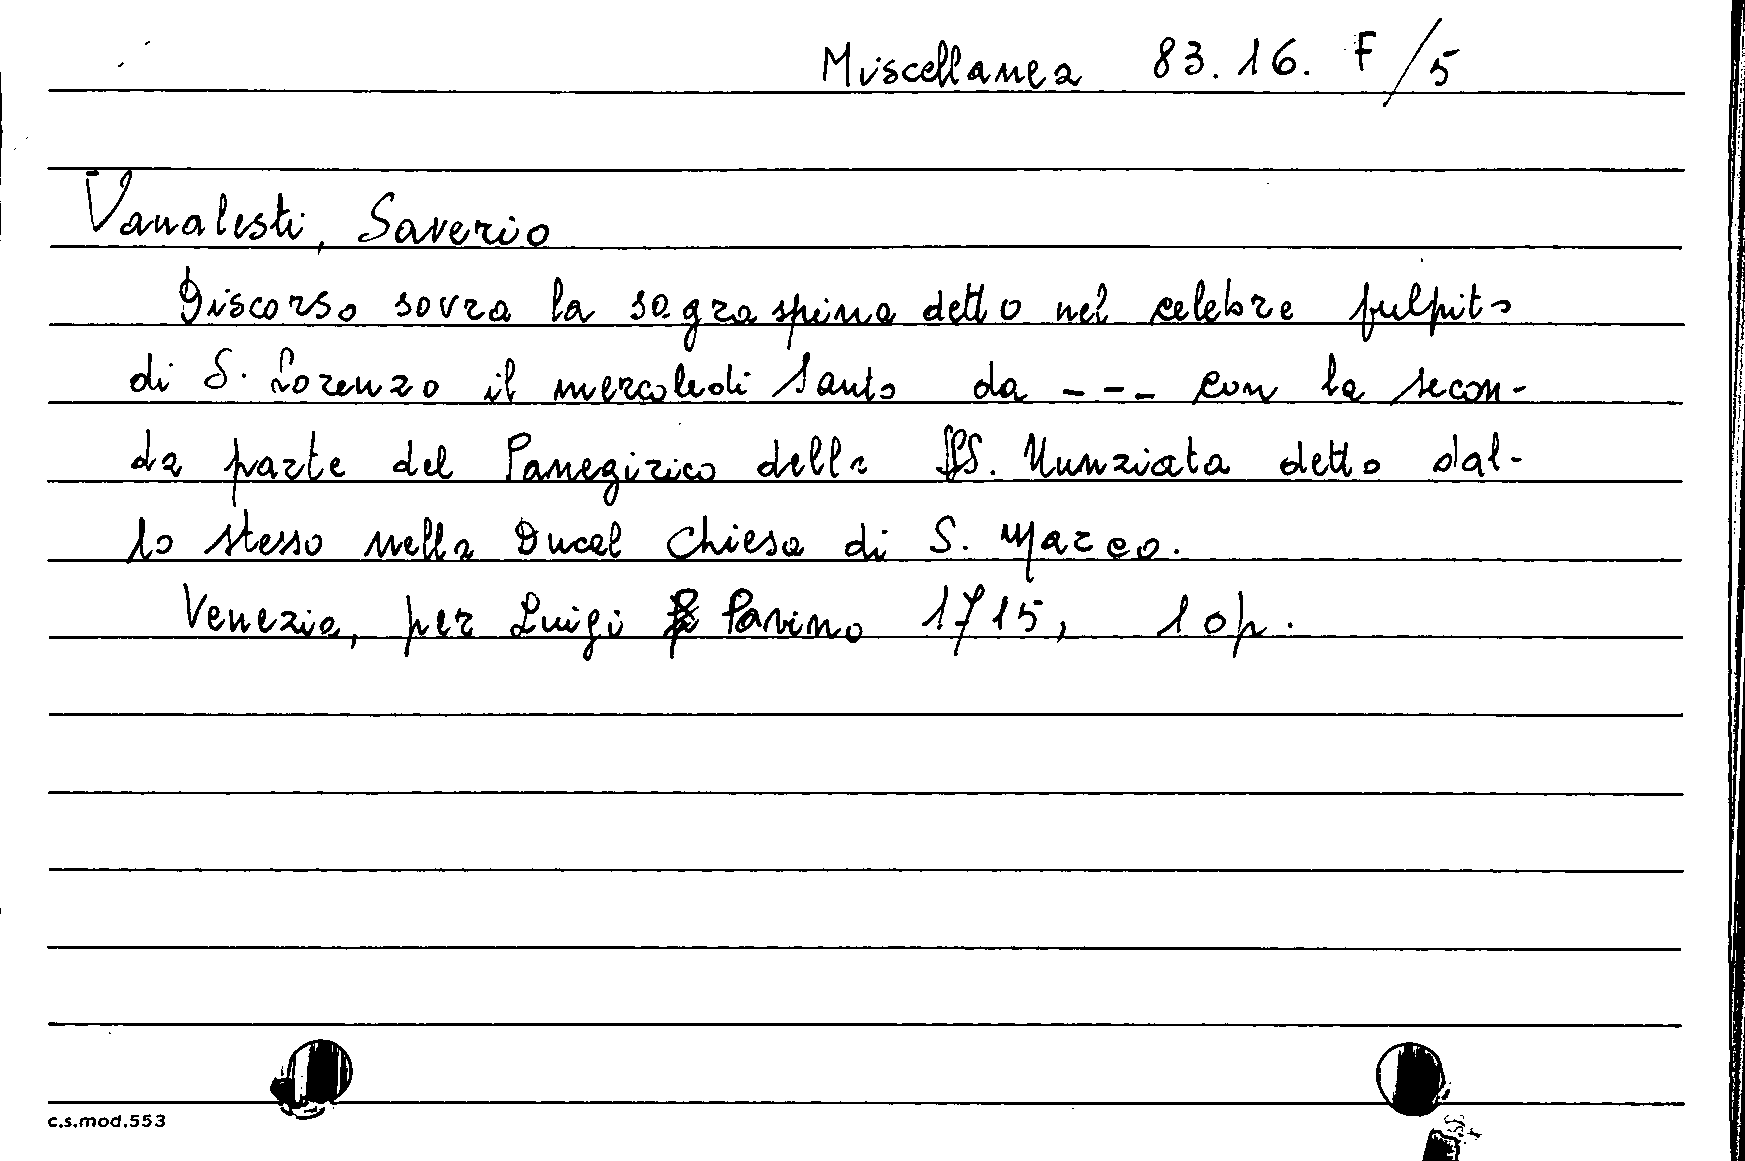 Miscellanea 83.16. F/5
Vanalesti, Saverio
Discorso sovra la sagra spina detto nel celebre pulpito
di S. Lorenzo il mercoledi Santo da --- con la secon-
da parte del Panegirico della SS. Nunziata detto dal-
lo stesso nella Ducal Chiesa di S. Marco.
Venezia, per Luigi Pavino 1715, 10p.
c.s.mod.553